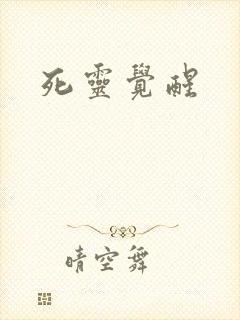 死靈覺醒
晴空舞